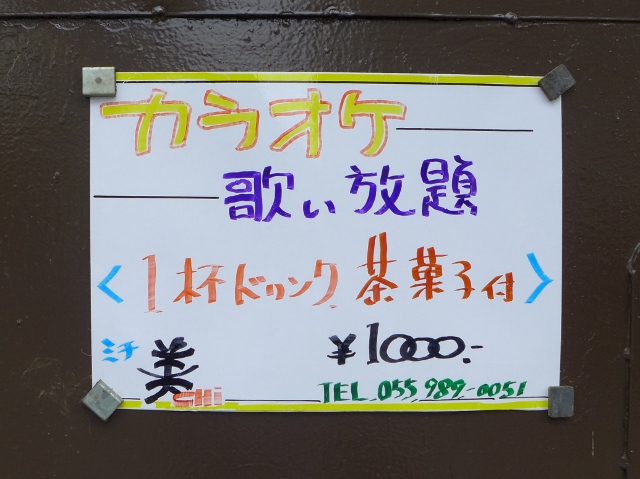 カラオケ
歌い放題
〈1杯ドリンク 茶菓子付〉
ミチ 美 CHi ¥1000.-
TEL 055 989-0051